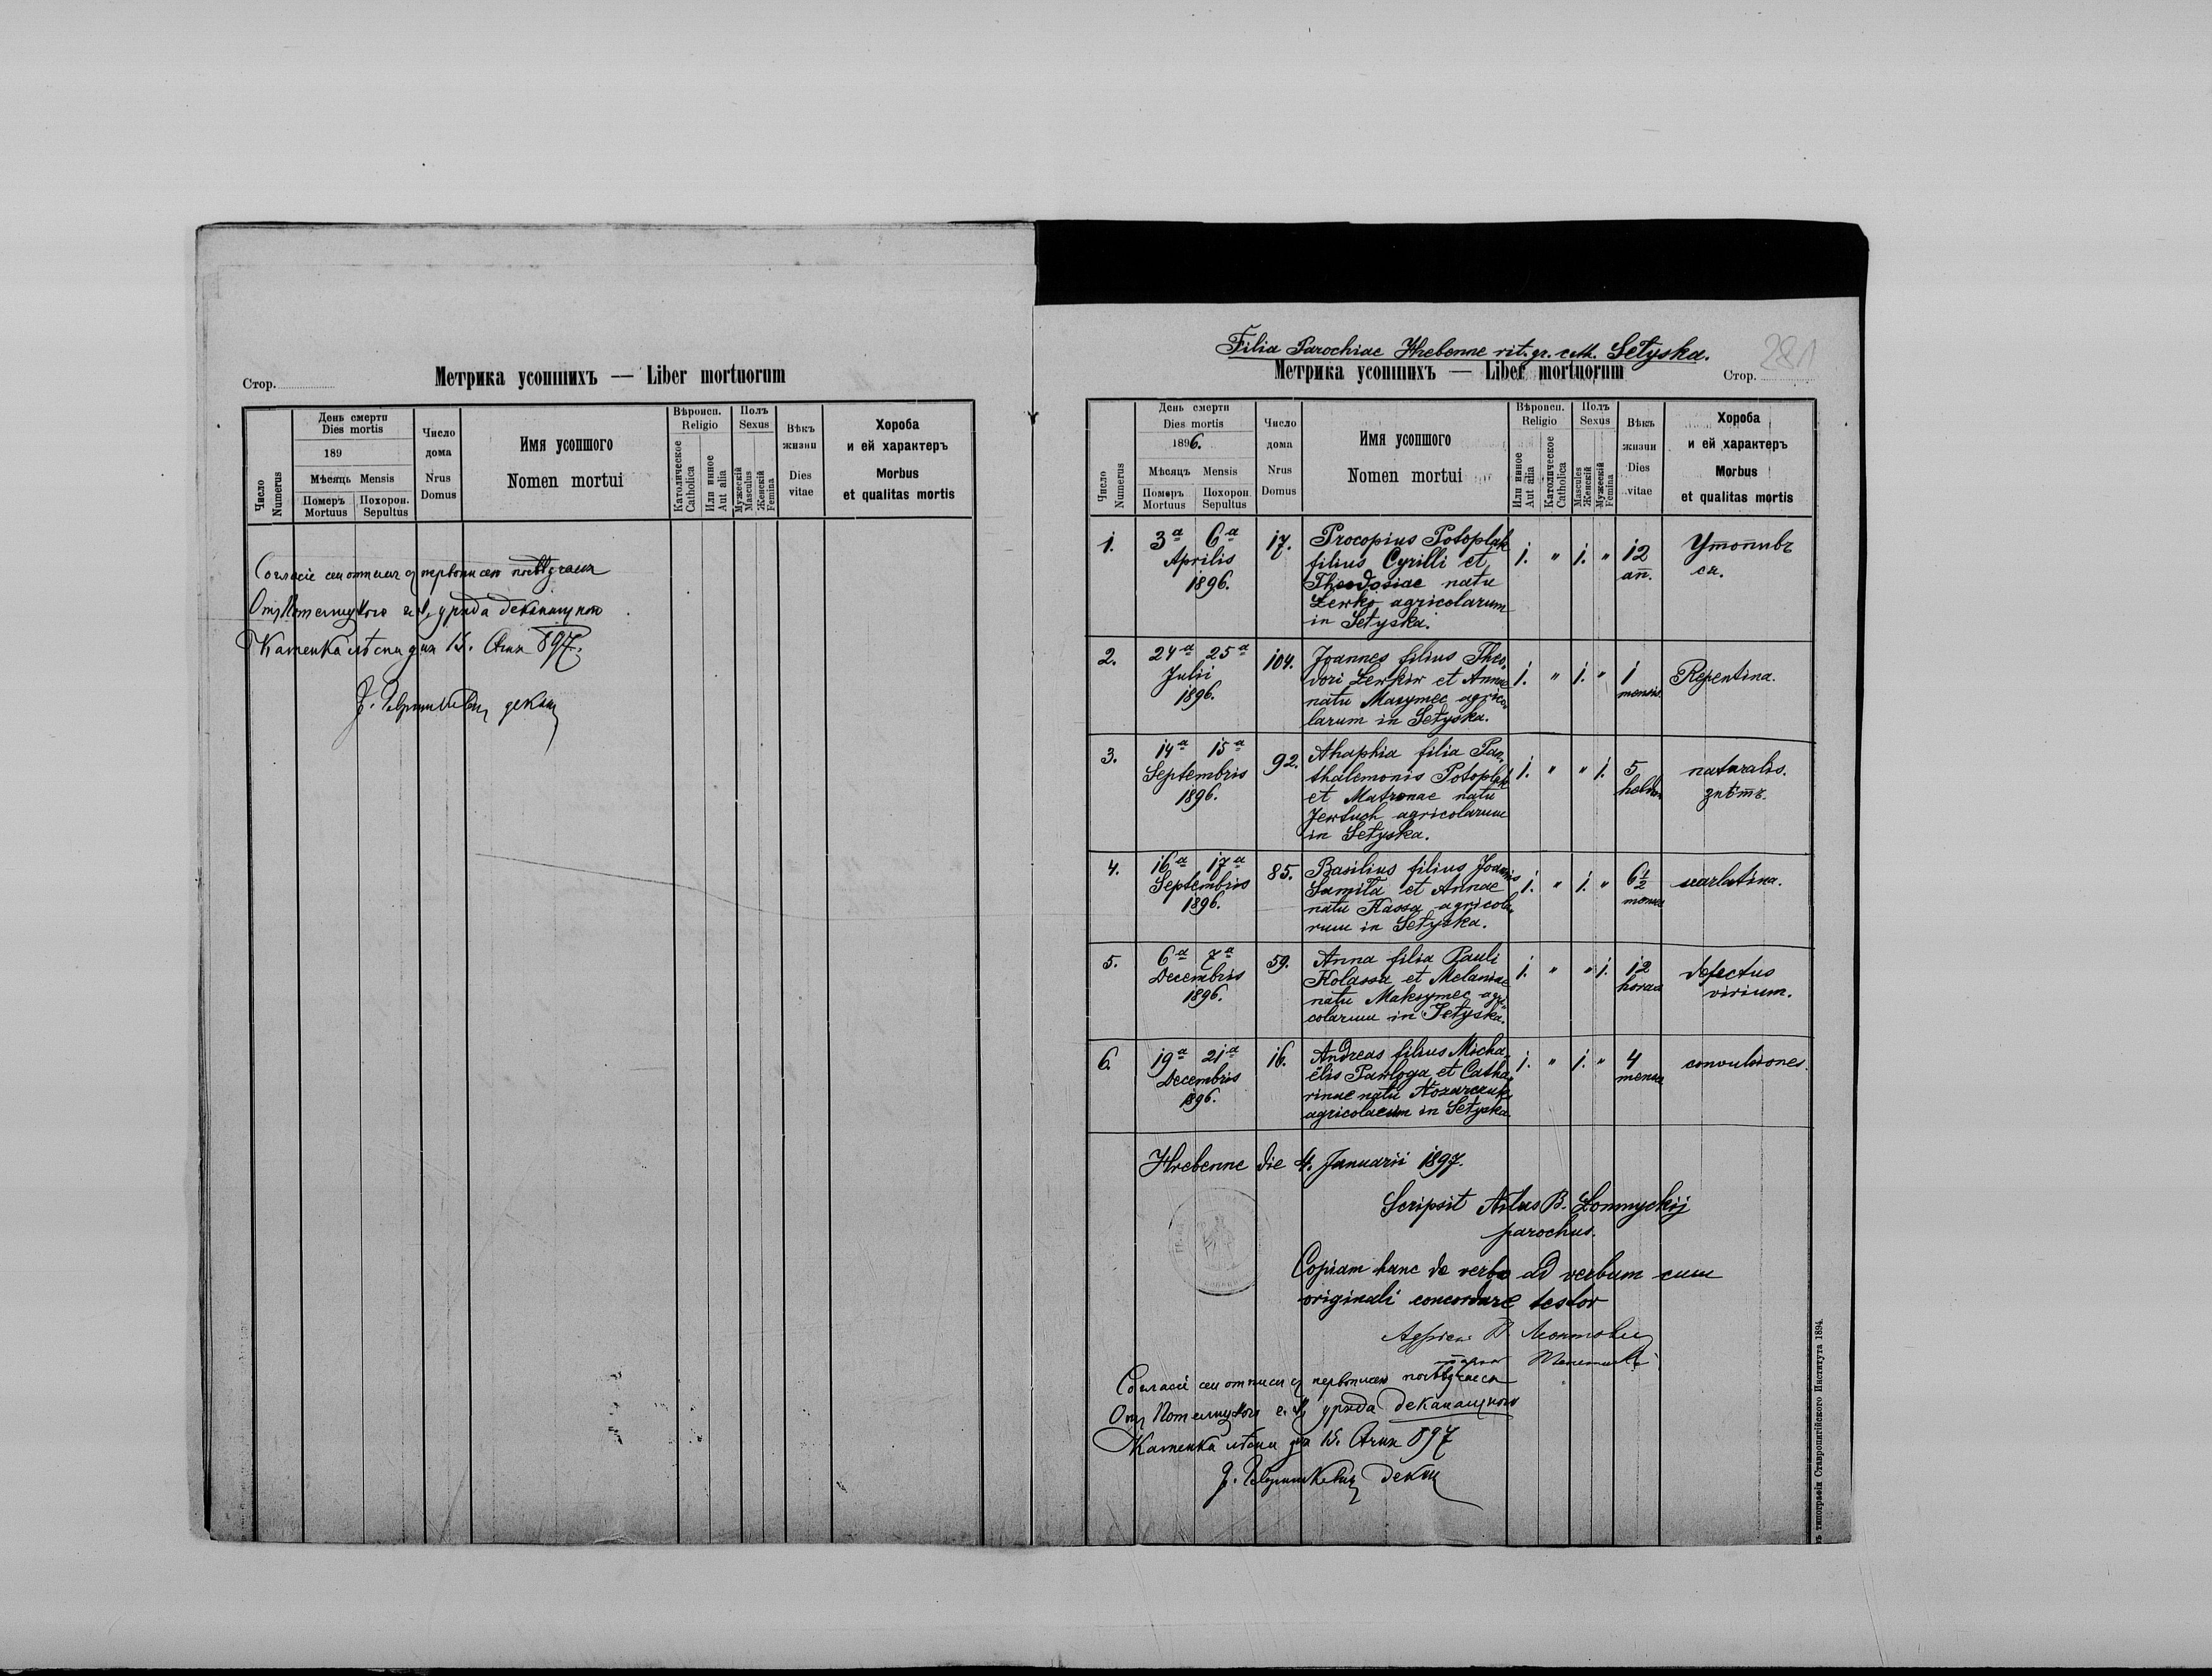 Стор.
Метрика усопшихъ — Liber mortuorum
Число
Numerus
День смерти
Dies mortis
189
Мѣсяцъ Mensis
Померъ
Mortuus
Похорон.
Sepultus
Число
дома
Nrus
Domus
Имя усопшого
Nomen mortui
Вѣроисп.
Religio
Католическое
Catholica
Или инное
Aut alia
Полъ
Sexus
Мужескій
Masculus
Женскій
Femina
Вѣкъ
жизни
Dies
vitae
Хороба
и ей характеръ
Morbus
et qualitas mortis
Согласіе сеи отписи съ первописею
деканального
Каменка дня 15. 897.
декан
Filia Parochiae Hrebenne rit. gr. cath. Setyska.
281
Метрика усопшихъ — Liber mortuorum
Стор.
Число
Numerus
День смерти
Dies mortis
1896.
Мѣсяцъ Mensis
Померъ
Mortuus
Похорон.
Sepultus
Число
дома
Nrus
Domus
Имя усопшого
Nomen mortui
Вѣроисп.
Religio
Или инное
Aut alia
Католическое
Catholica
Полъ
Sexus
Masculus
Женскій
Мужескій
Femina
Вѣкъ
жизни
Dies
vitae
Хороба
и ей характеръ
Morbus
et qualitas mortis
1. 3a 6a Aprilis 1896. 17.
Procopius Potoplak
filius Cyrilli et
Theodosiae natu
Żewko agricolarum
in Setyska.
1. " 1. " 12 an̄. Утопивъ ся.
2. 24a 25a Julii 1896. 104.
Joannes filius Theo-
dori Lewkiw et Annae
natu Maxymec agrico-
larum in Setyska.
1. " 1. " 1 mensis Repentina.
3. 14a 15a Septembris 1896. 92.
Ahaphia filia Pan-
thalemonis Potoplak
et Matronae natu
Jewtuch agricolarum
in Setyska.
1. " " 1. 5 naturalis.
4. 16a 17a Septembris 1896. 85.
Basilius filius Joannis
Samiła et Annae
natu Kassa agricola-
rum in Setyska.
1. " 1. " 6 1/2 menses scarlatina.
5. 6a 7a Decembris 1896. 59.
Anna filia Pauli
Kolassa et Melaniae
natu Maksymec agri-
colarum in Setyska.
1. " " 1. 12 horas defectus virium.
6. 19a 21a Decembris 1896. 16.
Andreas filius Micha-
ëlis Pawloga et Catha-
rinae natu Nozarczuk
agricolarum in Setyska
1. " 1. " 4 menses convulsiones.
Hrebenne die 4. Januarii 1897.
Scripsit Nilus B. Łonnyckij
parochus.
Copiam hanc de verbo ad verbum cum
originali concordare testor
Согласіе сеи отписи съ первописею
деканального
Каменка дня 15. 897
декан
ъ типографіи Ставропигійского Института 1894.